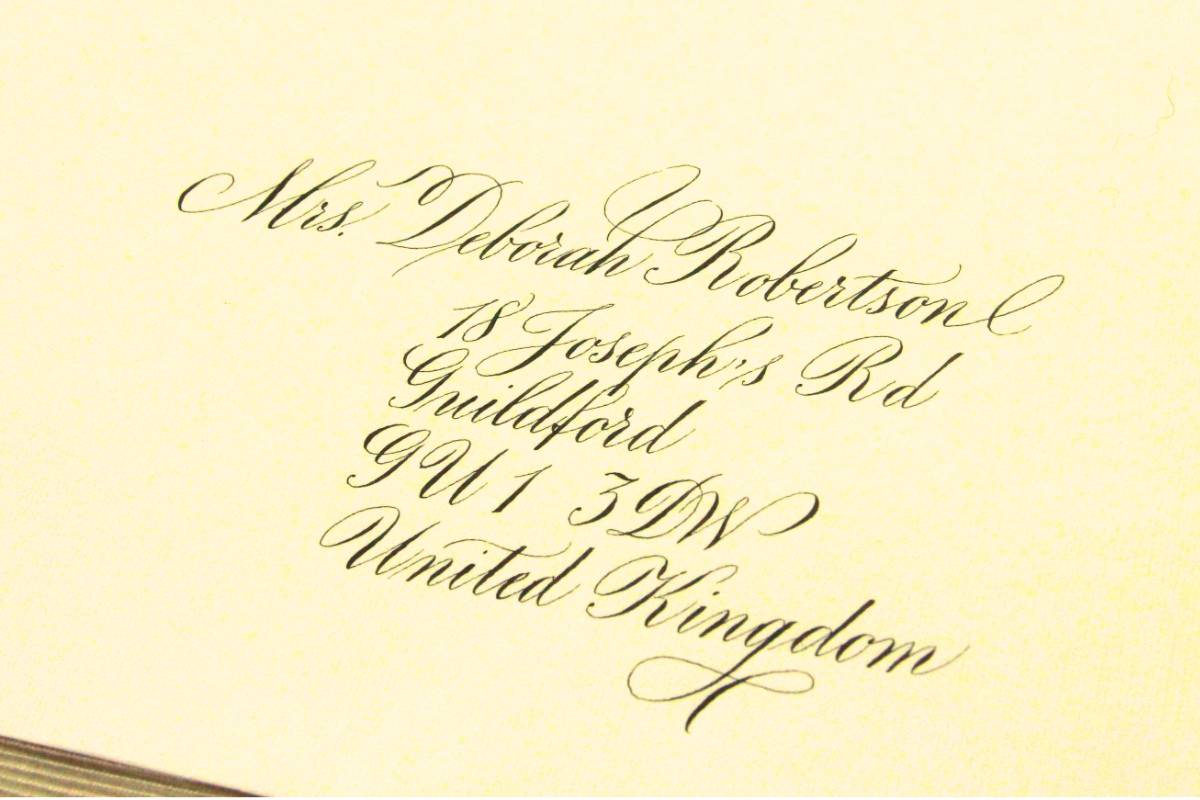 Mrs. Deborah Robertson
18 Joseph's Rd
Guildford
GU1 3DW
United Kingdom